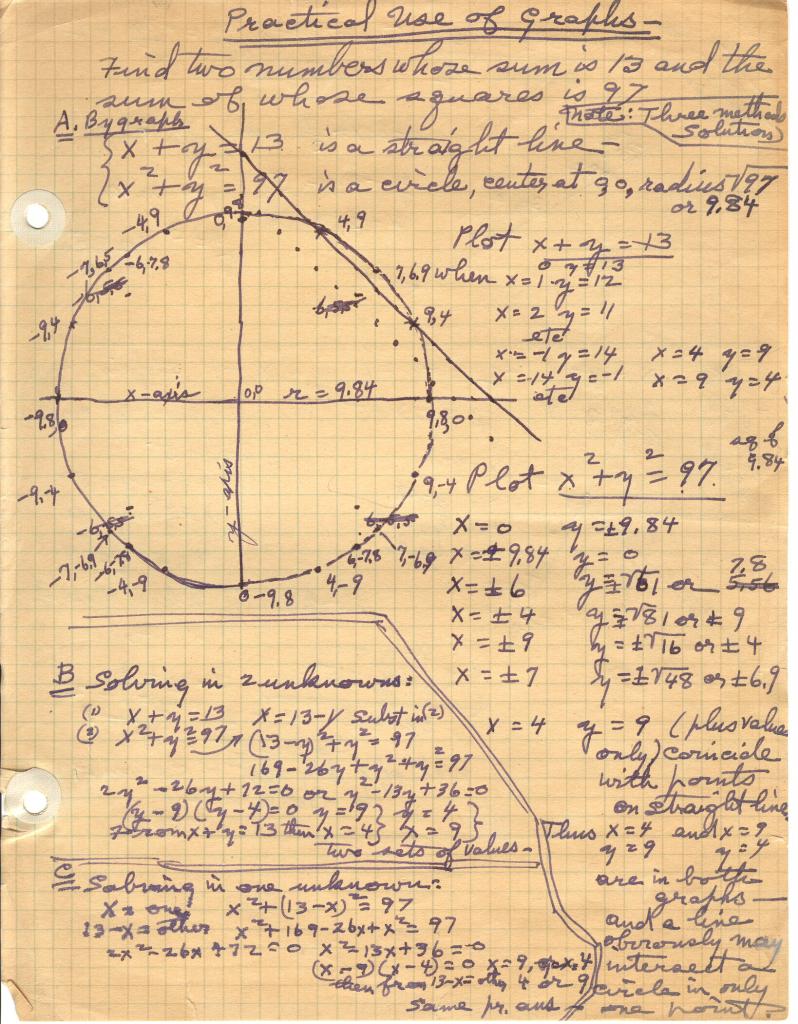 Practical Use of Graphs—
Find two numbers whose sum is 13 and the
sum of whose squares is 97
(note: Three methods
Solution)
A. By graph
x + y = 13 is a straight line—
x² + y² = 97 is a circle, center at 0,0, radius √97
or 9.84
-4,9
4,9
-7,6.9
-6,7.8
7,6.9
-9,4
9,4
x-axis
0,0
r = 9.84
-9.8,0
9.8,0
y-axis
-9,-4
9,-4
-7,-6.9
-6,-7.8
-4,-9
0-9.8
4,-9
6,-7.8
7,-6.9
Plot x + y = 13
0 y = 13
when x = 1 y = 12
x = 2 y = 11
etc
x = -1 y = 14 x = 4 y = 9
x = 14 y = -1 x = 9 y = 4
etc
sq of
9.84
Plot x² + y² = 97
x = 0 y = ±9.84
x = ±9.84 y = 0
x = ±6 y = ±√61 or 7.8
5.56
x = ±4 y = ±√81 or ±9
x = ±9 y = ±√16 or ±4
x = ±7 y = ±√48 or ±6.9
x = 4 y = 9 (plus values
only) coincide
with points
on straight line.
Thus x = 4 and x = 9
y = 9 y = 4
are in both
graphs—
and a line
obviously may
intersect a
circle in only
one point.
B Solving in 2 unknowns:
(1) x + y = 13 x = 13 - y Subst in (2)
(2) x² + y² = 97 (13 - y)² + y² = 97
169 - 26y + y² + y² = 97
2y² - 26y + 72 = 0 or y² - 13y + 36 = 0
(y - 9)(y - 4) = 0 y = 9 } y = 4 }
From x + y = 13 then x = 4 } x = 9 }
two sets of values—
C Solving in one unknown:
x = one x² + (13 - x)² = 97
13 - x = other x² + 169 - 26x + x² = 97
2x² - 26x + 72 = 0 x² - 13x + 36 = 0
(x - 9)(x - 4) = 0 x = 9, x = 4
then from 13 - x = other 4 or 9
same pr. ans—